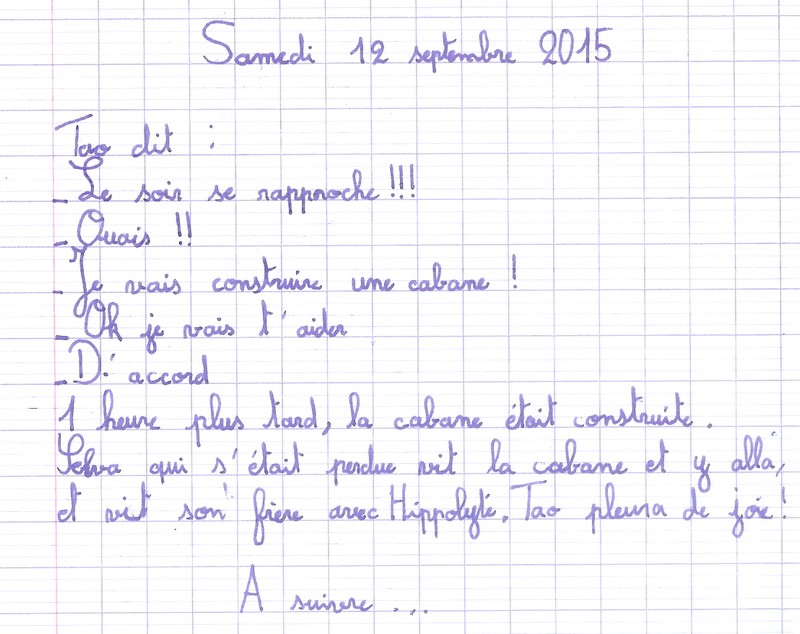 Samedi 12 septembre 2015
Tao dit :
_ Le soir se rapproche !!!
_ Ouais !!
_ Je vais construire une cabane !
_ Ok je vais t'aider
_ D'accord
1 heure plus tard, la cabane était construite.
Selva qui s'était perdue vit la cabane et y allá,
et vit son frère avec Hippolyte. Tao pleura de joie !
A suivre ...